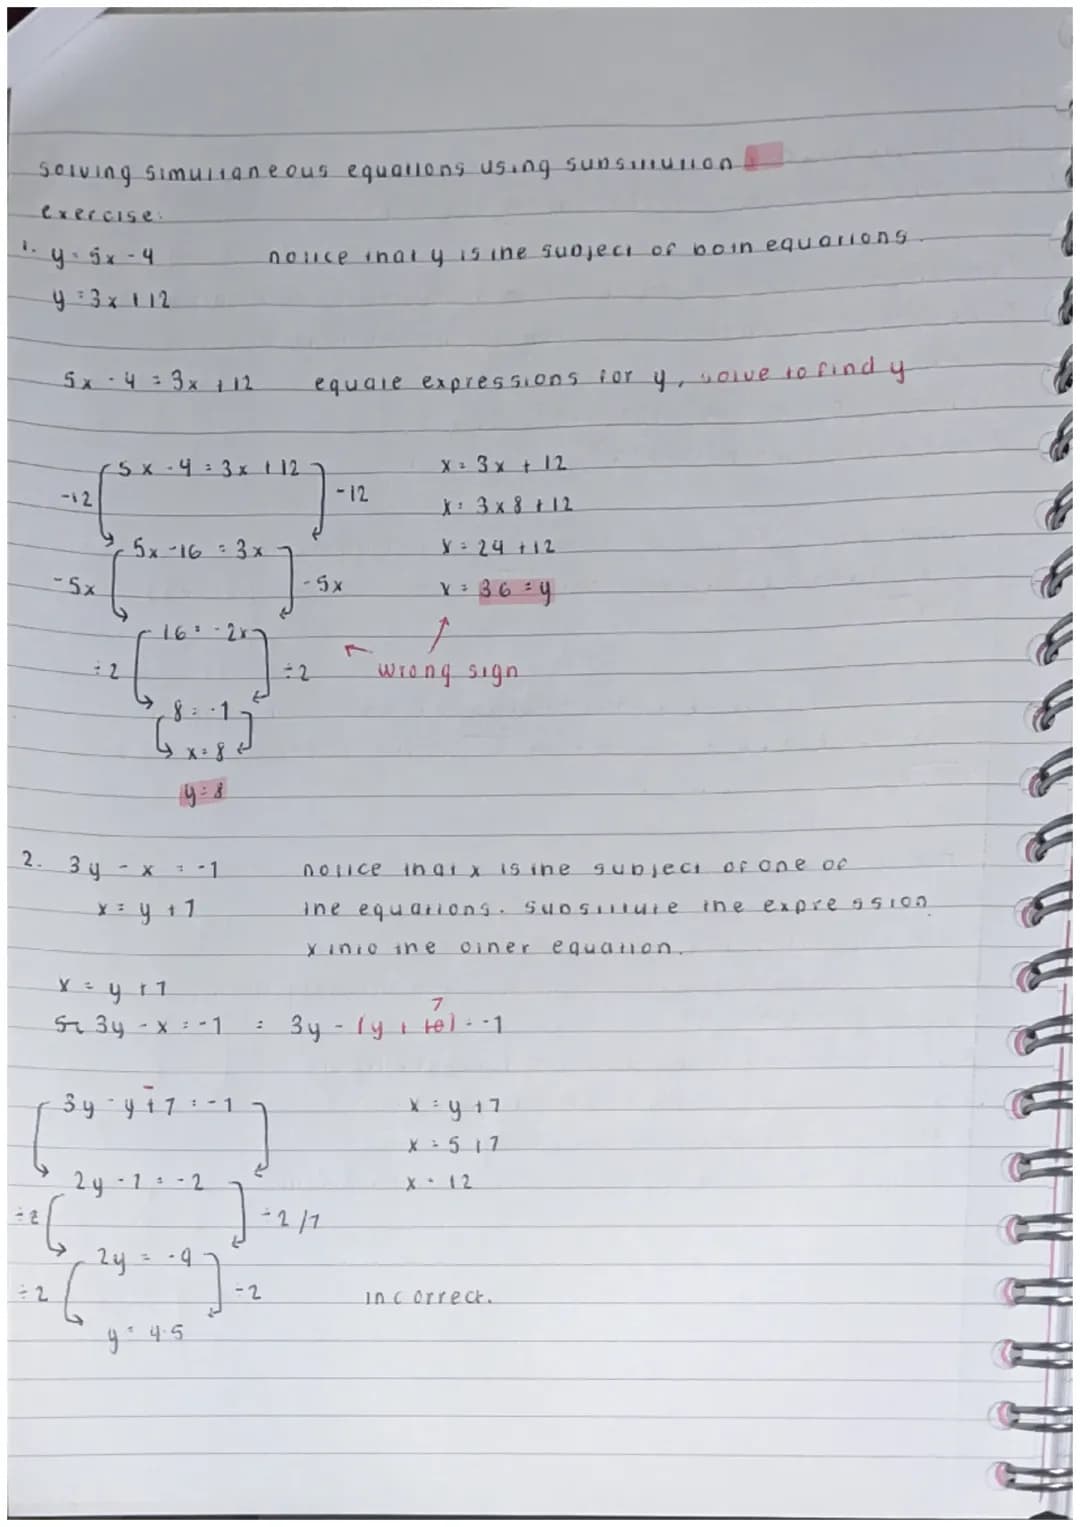 solving simultaneous equations using sunstitution
exercise:
1. y = 5x - 4 notice that y is the subject of both equations.
y = 3x + 12
5x - 4 = 3x + 12 equate expressions for y, solve to find y
5x - 4 = 3x + 12 x = 3x + 12
-12 -12
x = 3 x 8 + 12
5x - 16 = 3x x = 24 + 12
-5x -5x x = 36 = y
16 = -2x
÷2 ÷2 wrong sign
8 = -1
x = 8
y = 8
2. 3y - x = -1 notice that x is the subject of one of
x = y + 7 the equations. substitute the expression
x into the other equation.
x = y + 7
7
3y - x = -1 = 3y - (y + 10) = -1
-
3y - y + 7 = -1 x = y + 7
x = 5 + 7
2y - 7 = -2 x = 12
÷2 ÷2/7
2y = -9
÷2 ÷2 incorrect.
y = 4.5